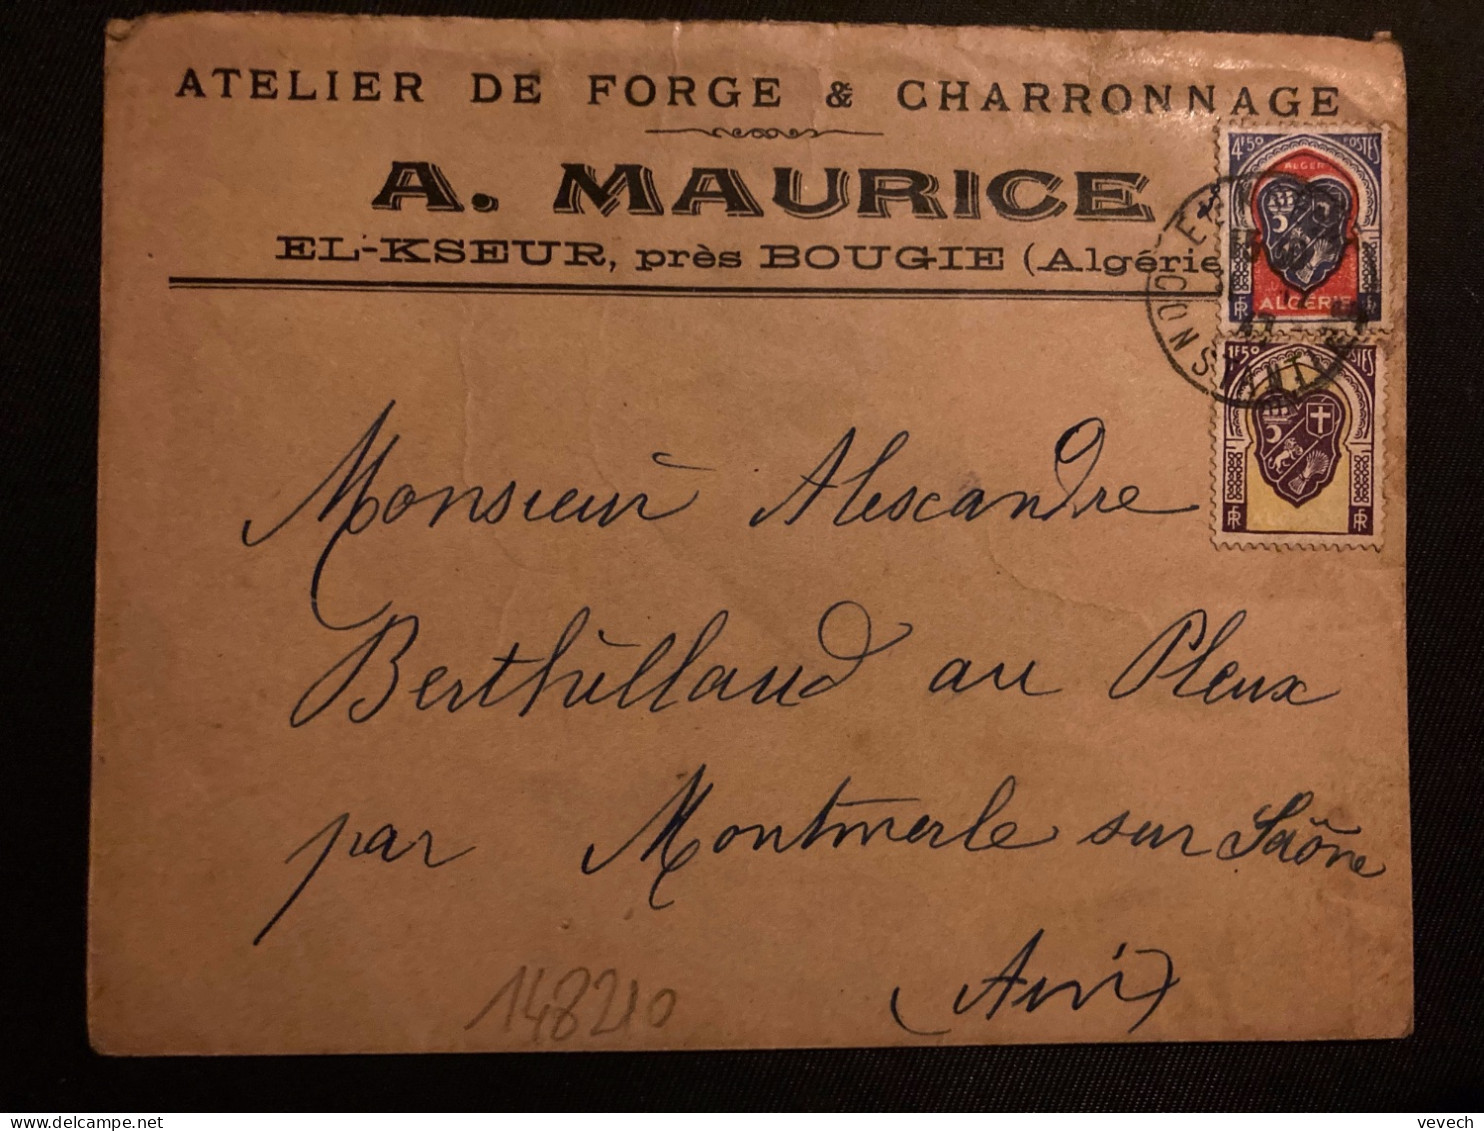 ATELIER DE FORGE & CHARRONNAGE
A. MAURICE
EL-KSEUR, près BOUGIE (Algérie
4F50 POSTES
ALGER
ALGÉRIE
RF RF
1F50 POSTES
RF RF
CONSTANTINE
Monsieur Alexandre
Berthilland au Pleux
par Montmerle sur Saône
(Ain)
148210
vevech